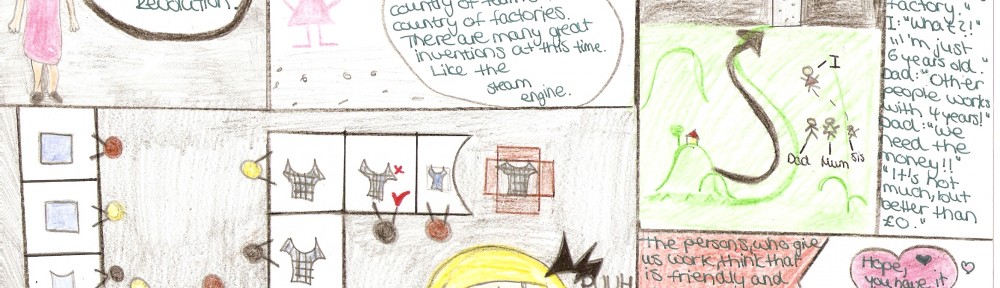 Revolution.
country of
country of factories.
There are many great
inventions at this time.
Like the
steam
engine.
I
Dad Mum Sis
factory."
I: "What?!"
"I'm just
6 years old."
Dad: "Other
people works
with 4 years!"
Dad: "We
need the
money!!"
"It's not
much, but
better than
£0."
The persons, who give
us work, think that
is friendly and
Hope,
you have it